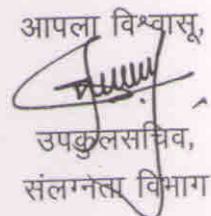 आपला विश्वासू,
उपकुलसचिव,
संलग्नता विभाग